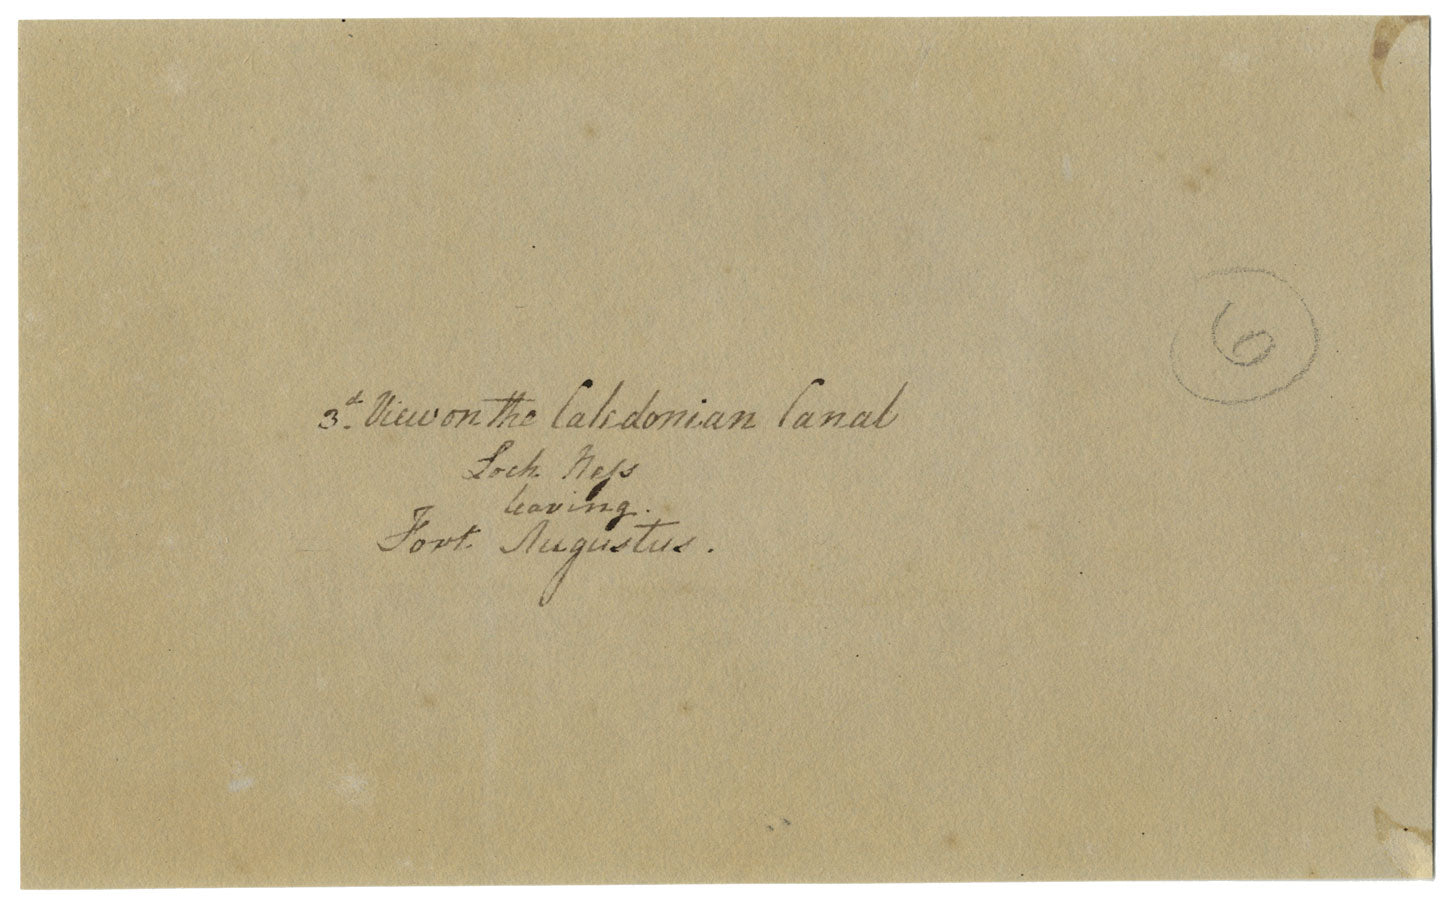 3.d View on the Caledonian Canal
Loch Neſs
leaving.
Fort Augustus.
6